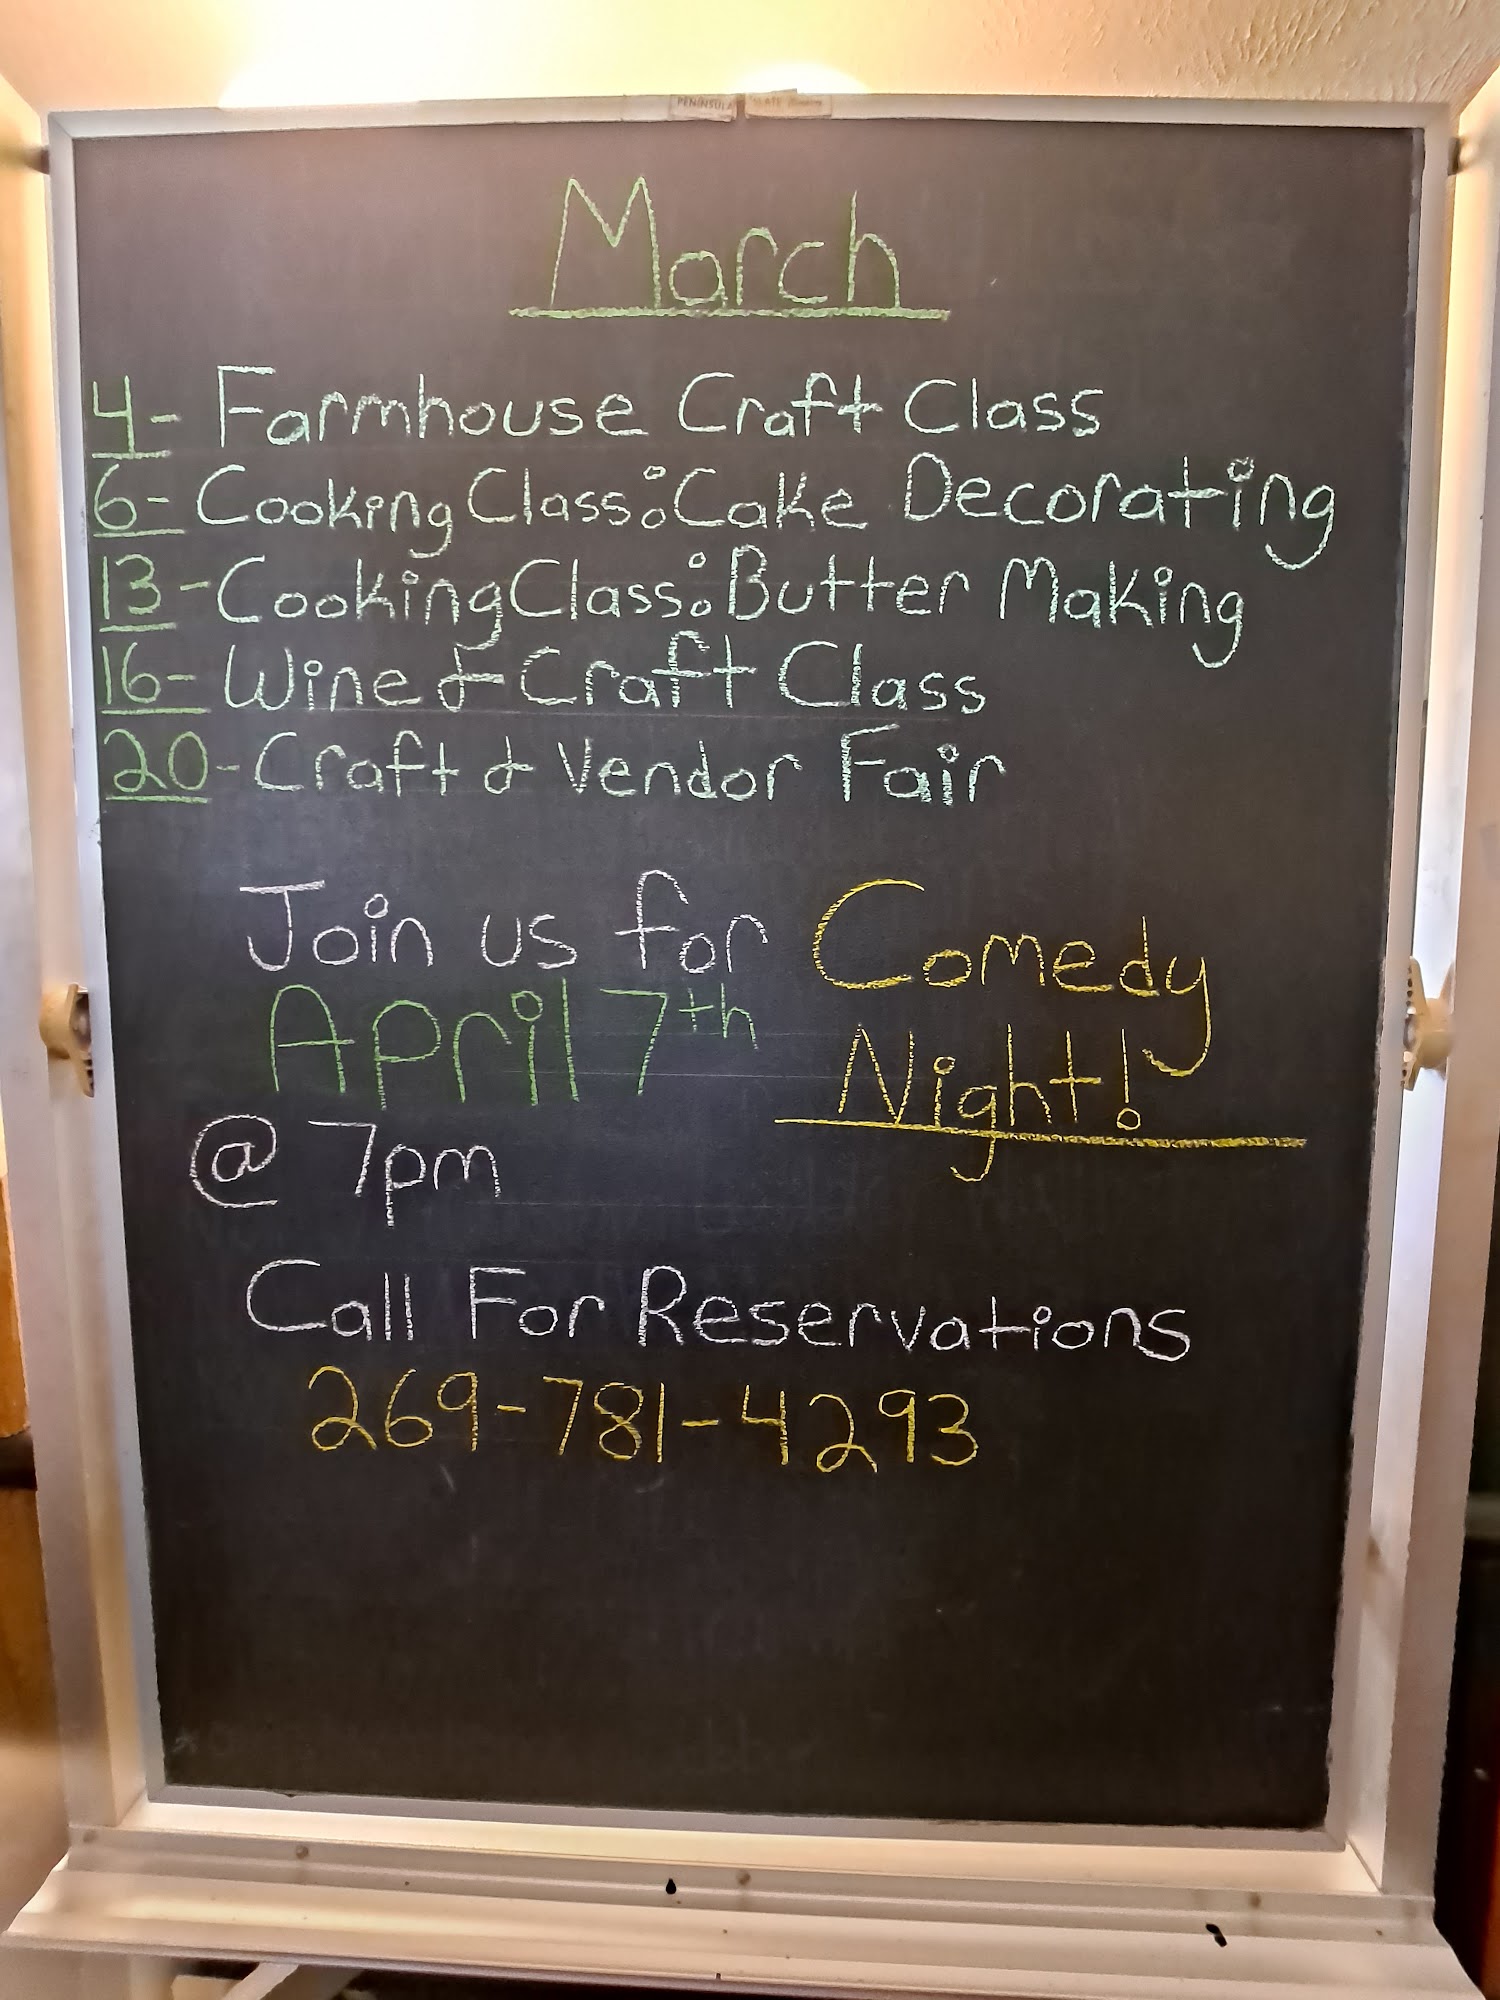 PENINSULA SLATE
March
4- Farmhouse Craft Class
6- Cooking Class: Cake Decorating
13- Cooking Class: Butter Making
16- Wine & Craft Class
20- Craft & Vendor Fair
Join us for Comedy
April 7th Night!
@ 7pm
Call For Reservations
269-781-4293